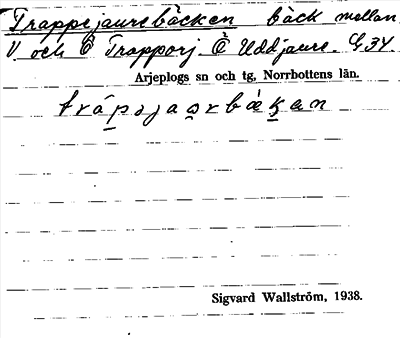 Trappejaurebäcken bäck mellan
V. och Ö Trapparj. Ö Uddjaure. G34
Arjeplogs sn och tg, Norrbottens län.
trápəjaɷrbä̀kən
Sigvard Wallström, 1938.